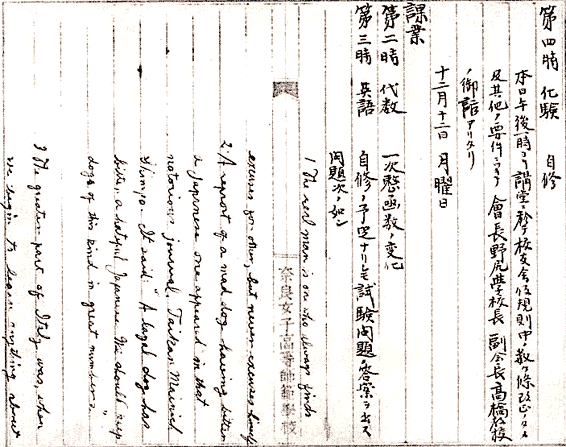 第四時 化験 自修
本日午後一時ヨリ講堂ニ於テ校友会仮規則中ノ数ケ條改正ノタメ
及其他ノ要件ニツキ 會長野尻學校長 副会長高橋教授
ノ御 アリタリ
十二月十二日 月曜日
課業
第二時 代数 一次整函数ノ変化
第三時 英語 自修ノ予定ナリシモ試験問題ノ答案ヲナス
問題次ノ如シ
1 The real man is on who always finds
excuses for other, but never excuses himself
2. A report of a mad dog having bitten
a Japanese one appeared in that
notorious journal, Taikan Mainichi
Shimpo. It said: "A loyal dog has
bitten a hateful Japanese. We should keep
dogs of this kind in great numbers."
3 The greater part of Italy was, when
we begin to learn anything about
奈良女子高等師範學校